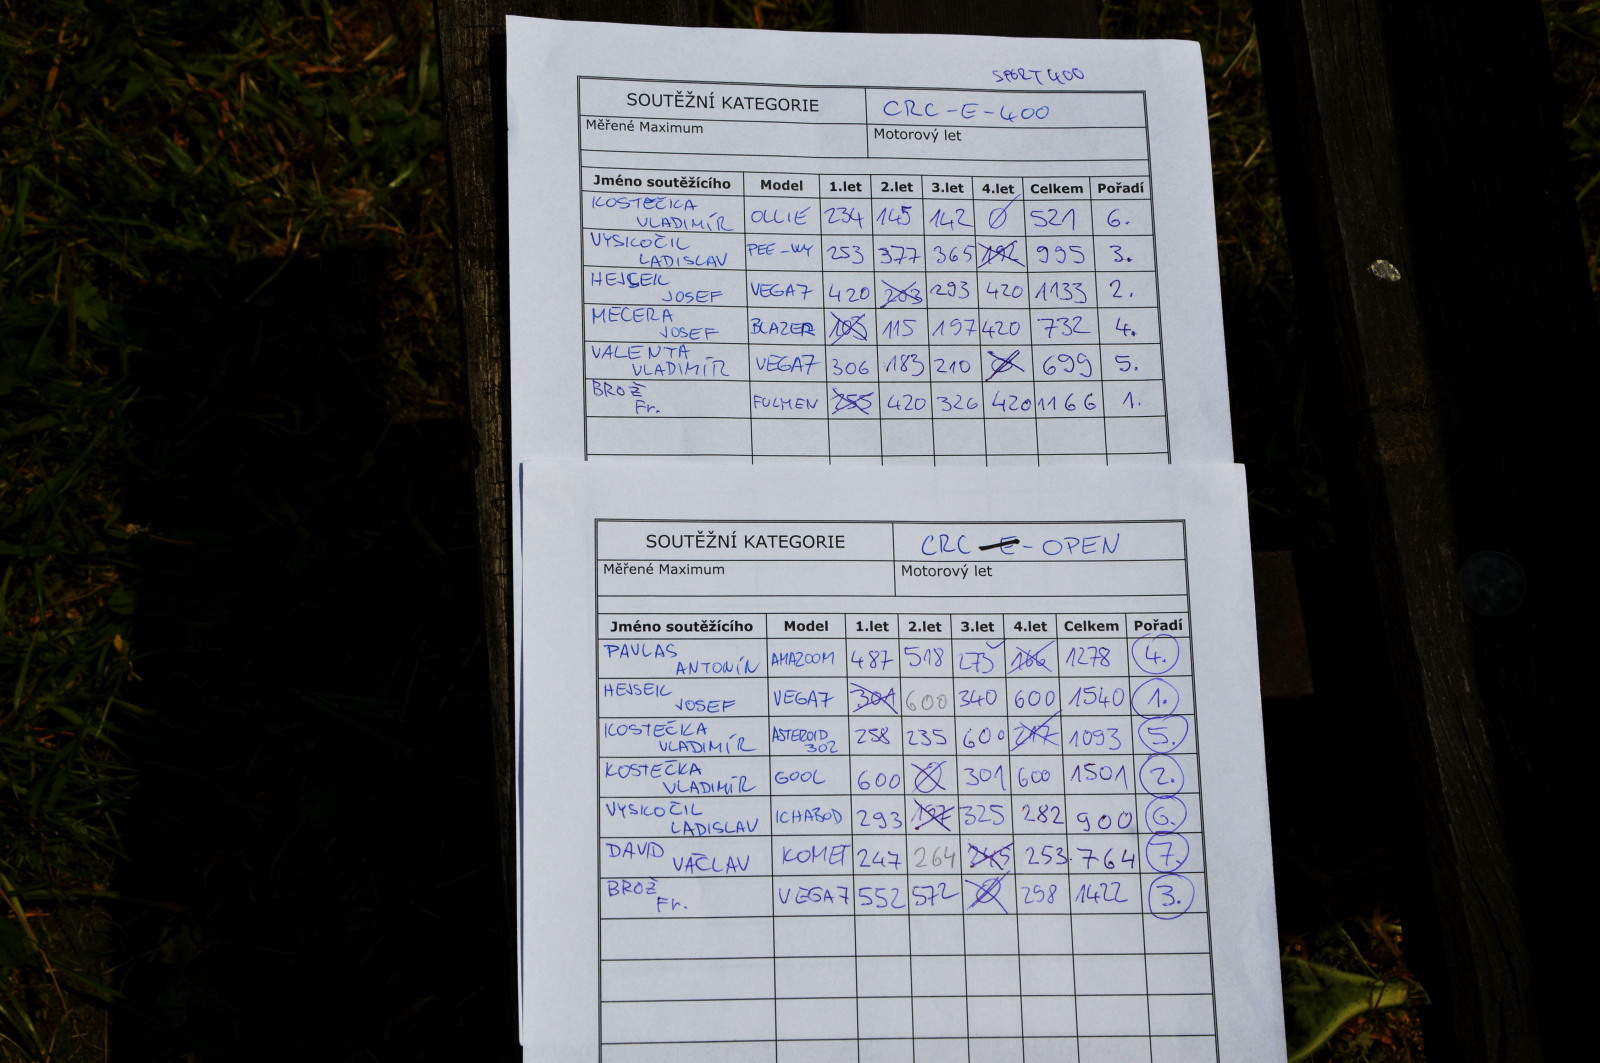 SPORT 400
SOUTĚŽNÍ KATEGORIE CRC-E-400
Měřené Maximum Motorový let
Jméno soutěžícího Model 1.let 2.let 3.let 4.let Celkem Pořadí
KOSTEČKA
VLADIMÍR OLLIE 234 145 142 0 521 6.
VYSKOČIL
LADISLAV PEE-WY 253 377 365 995 3.
HEJSEK
JOSEF VEGA7 420 203 293 420 1133 2.
MECERA
JOSEF BLAZER 103 115 197 420 732 4.
VALENTA
VLADIMÍR VEGA7 306 183 210 0 699 5.
BROŽ
Fr. FULMEN 255 420 326 420 1166 1.
SOUTĚŽNÍ KATEGORIE CRC-E-OPEN
Měřené Maximum Motorový let
Jméno soutěžícího Model 1.let 2.let 3.let 4.let Celkem Pořadí
PAVLAS
ANTONÍN AMAZOOM 487 518 273 166 1278 4.
HEJSEK
JOSEF VEGA7 301 600 340 600 1540 1.
KOSTEČKA
VLADIMÍR ASTEROID 302 258 235 600 217 1093 5.
KOSTEČKA
VLADIMÍR GOOL 600 0 301 600 1501 2.
VYSKOČIL
LADISLAV ICHABOD 293 197 325 282 900 6.
DAVID
VÁCLAV KOMET 247 264 245 253 764 7.
BROŽ
Fr. VEGA7 552 572 0 298 1422 3.